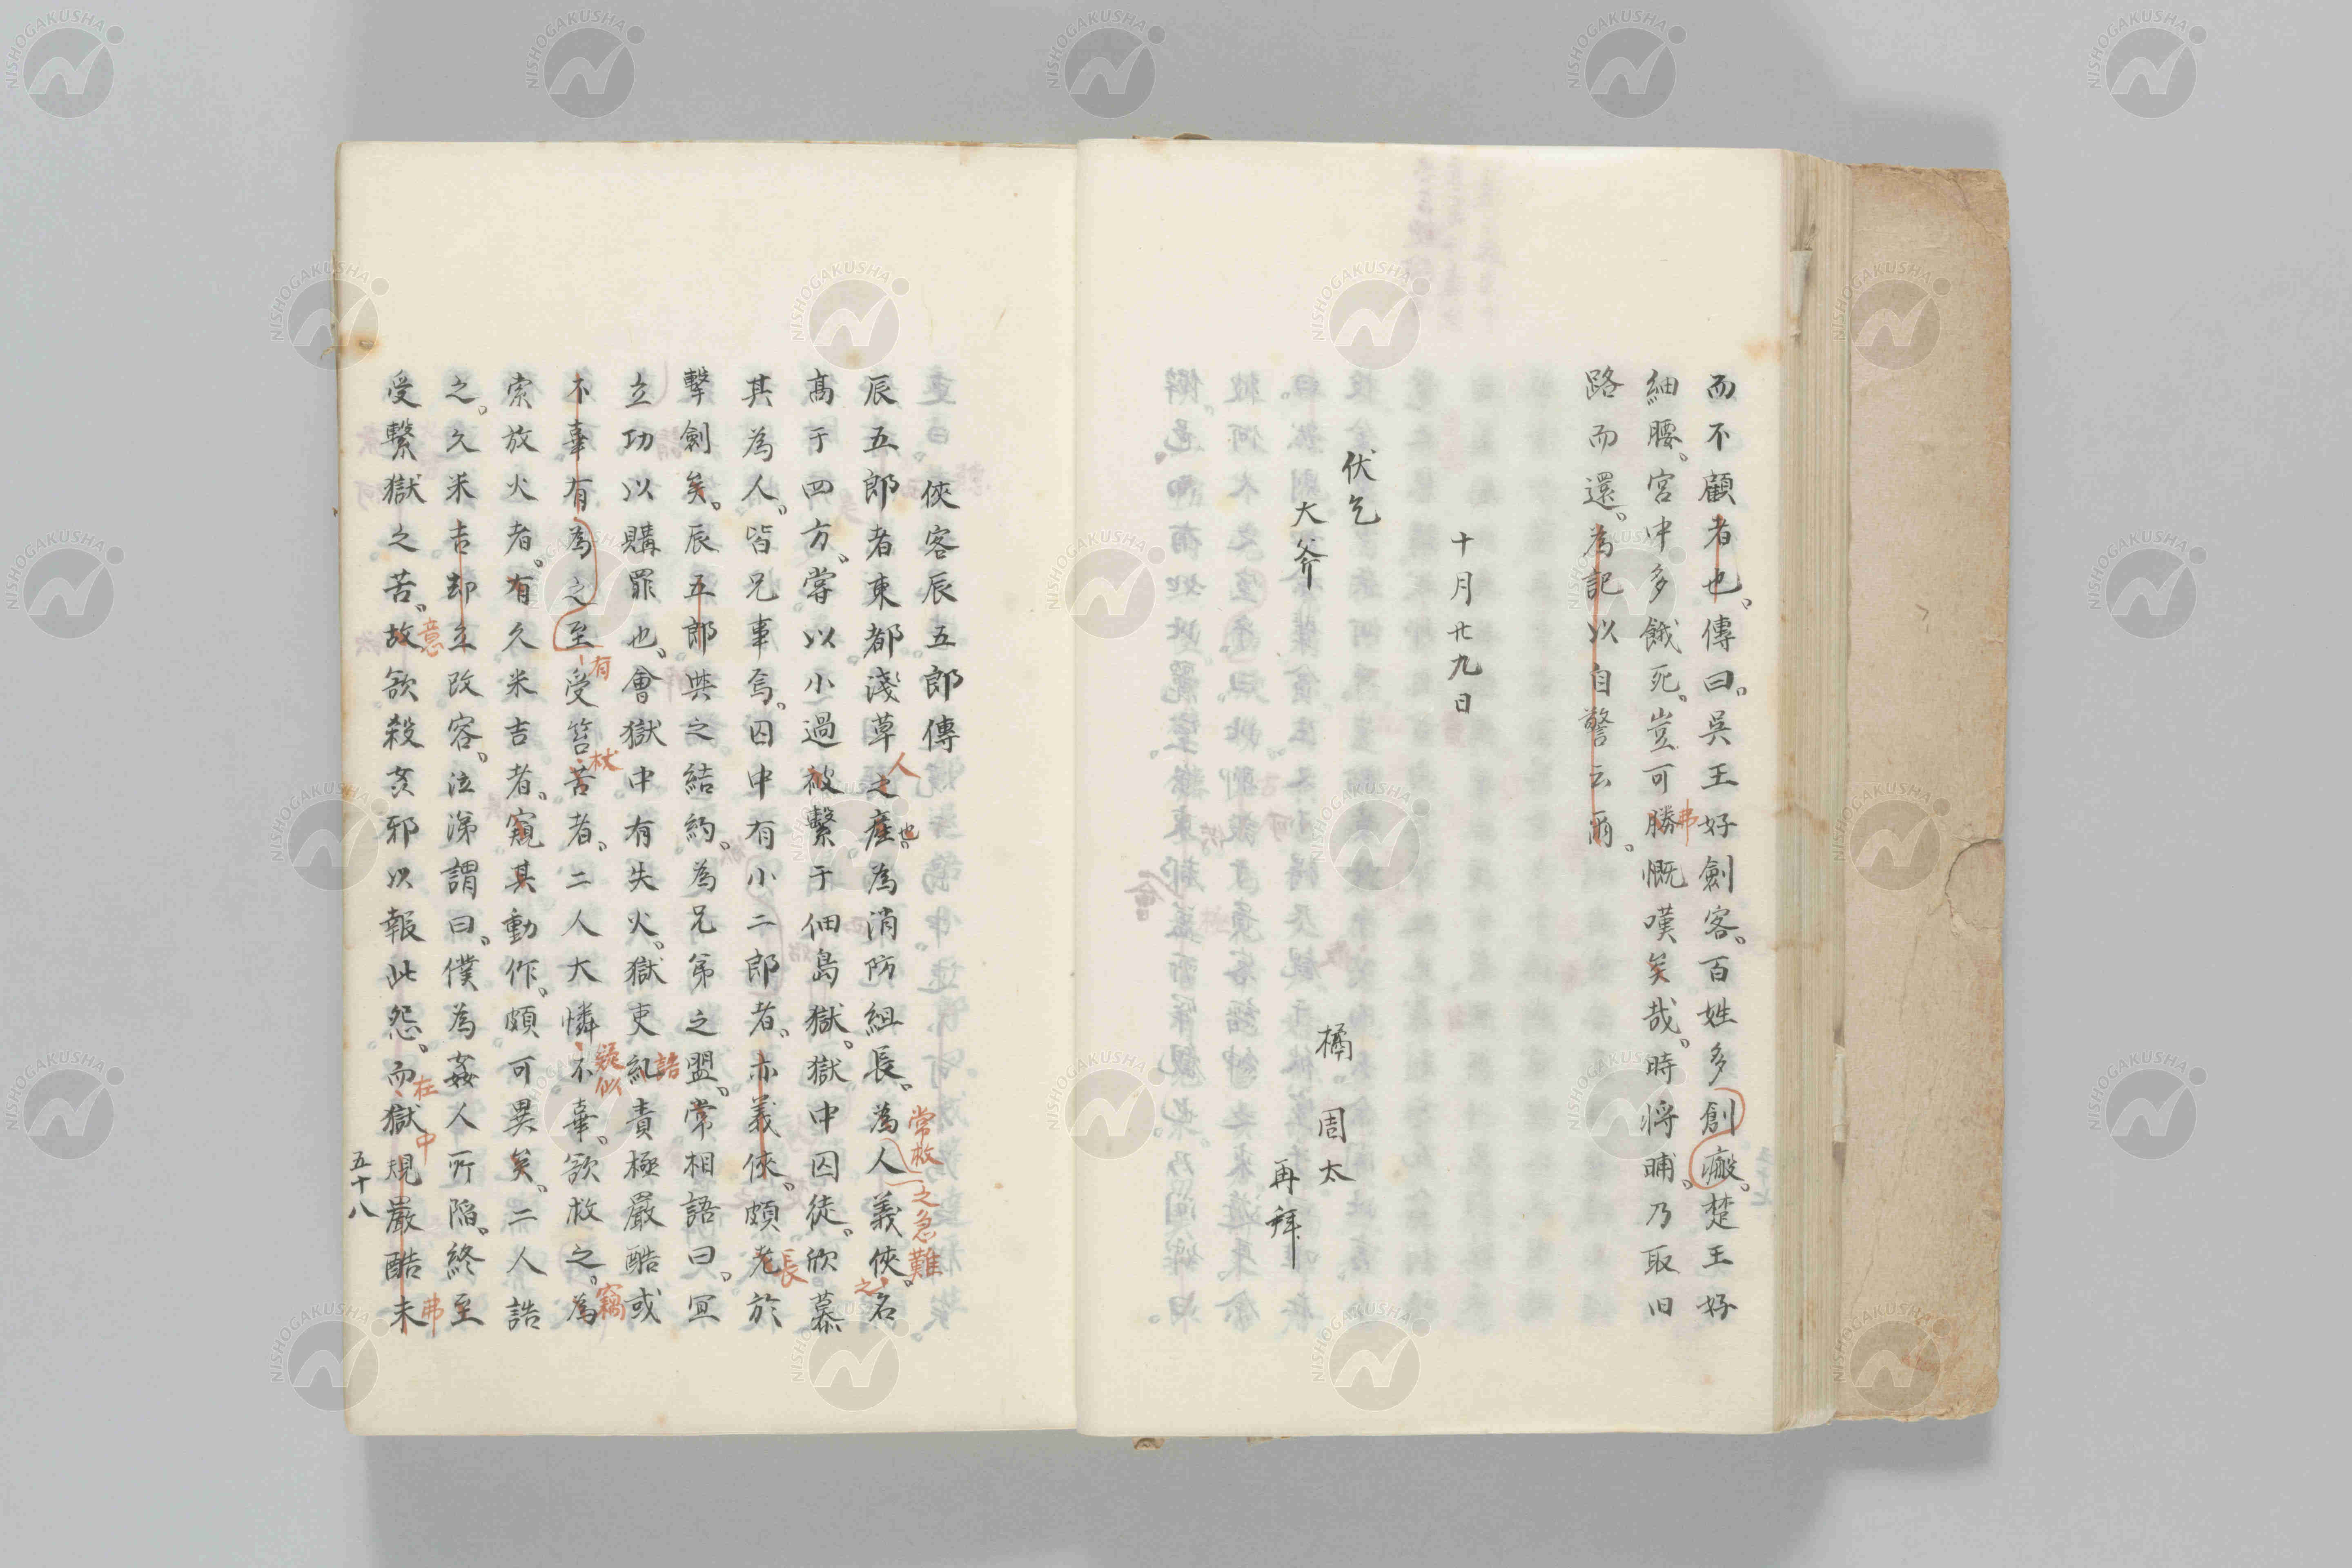 而不顧者也、傳曰。吳王好劍客。百姓多創瘢。楚王好
細腰。宮中多餓死。豈可勝慨嘆矣哉。時将晡。乃取旧
弗
路而還。為記以自警云爾。
十月廿九日
伏乞
大斧
橘周太
再拜
俠客辰五郎傳
辰五郎者東都淺草之産。為消防組長。為人義俠。名
人
也
常救
之急難
之
髙于四方。嘗以小過被繫于佃島獄。獄中囚徒。欣慕
其為人。皆兄事焉。囚中有小二郎者。亦義俠。頗老於
長
擊劍矣。辰五郎與之結約。為兄弟之盟。常相語曰。宜
立功以購罪也。會獄中有失火。獄吏糺責極嚴酷或
詰
不辜有為之至受笞苦者。二人大憐不辜。欲救之。為
有
杖
疑似
竊
索放火者。有久米吉者。窺其動作。頗可異矣。二人詰
之。久米吉却立改容。泣涕謂曰。僕為姦人所陥。終至
受繫獄之苦。故欲殺亥邪以報此怨。而獄規嚴酷未
意
在
中
弗
五十八